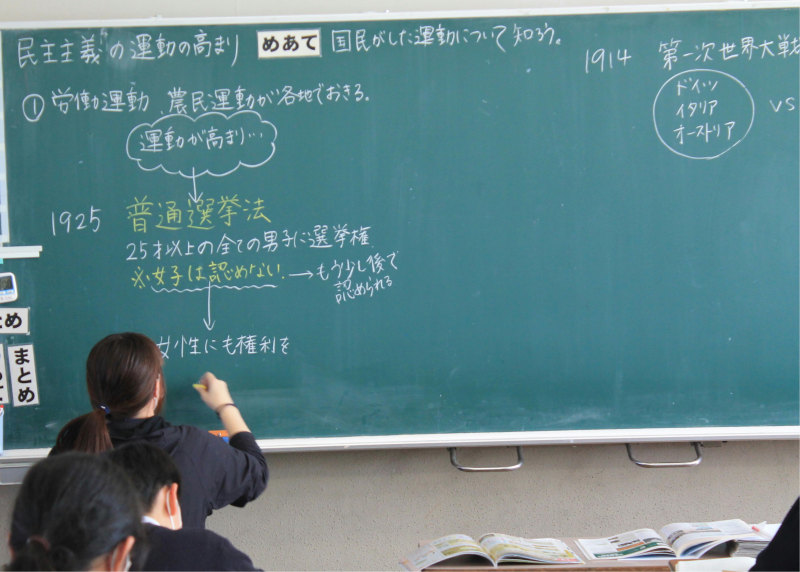 民主主義の運動の高まり めあて 国民がした運動について知ろう。
① 労働運動、農民運動が各地でおきる。
運動が高まり…
1925 普通選挙法
25才以上の全ての男子に選挙権
※女子は認めない → もう少し後で
認められる
女性にも権利を
1914 第一次世界大戦
ドイツ
イタリア
オーストリア
VS
め
まとめ